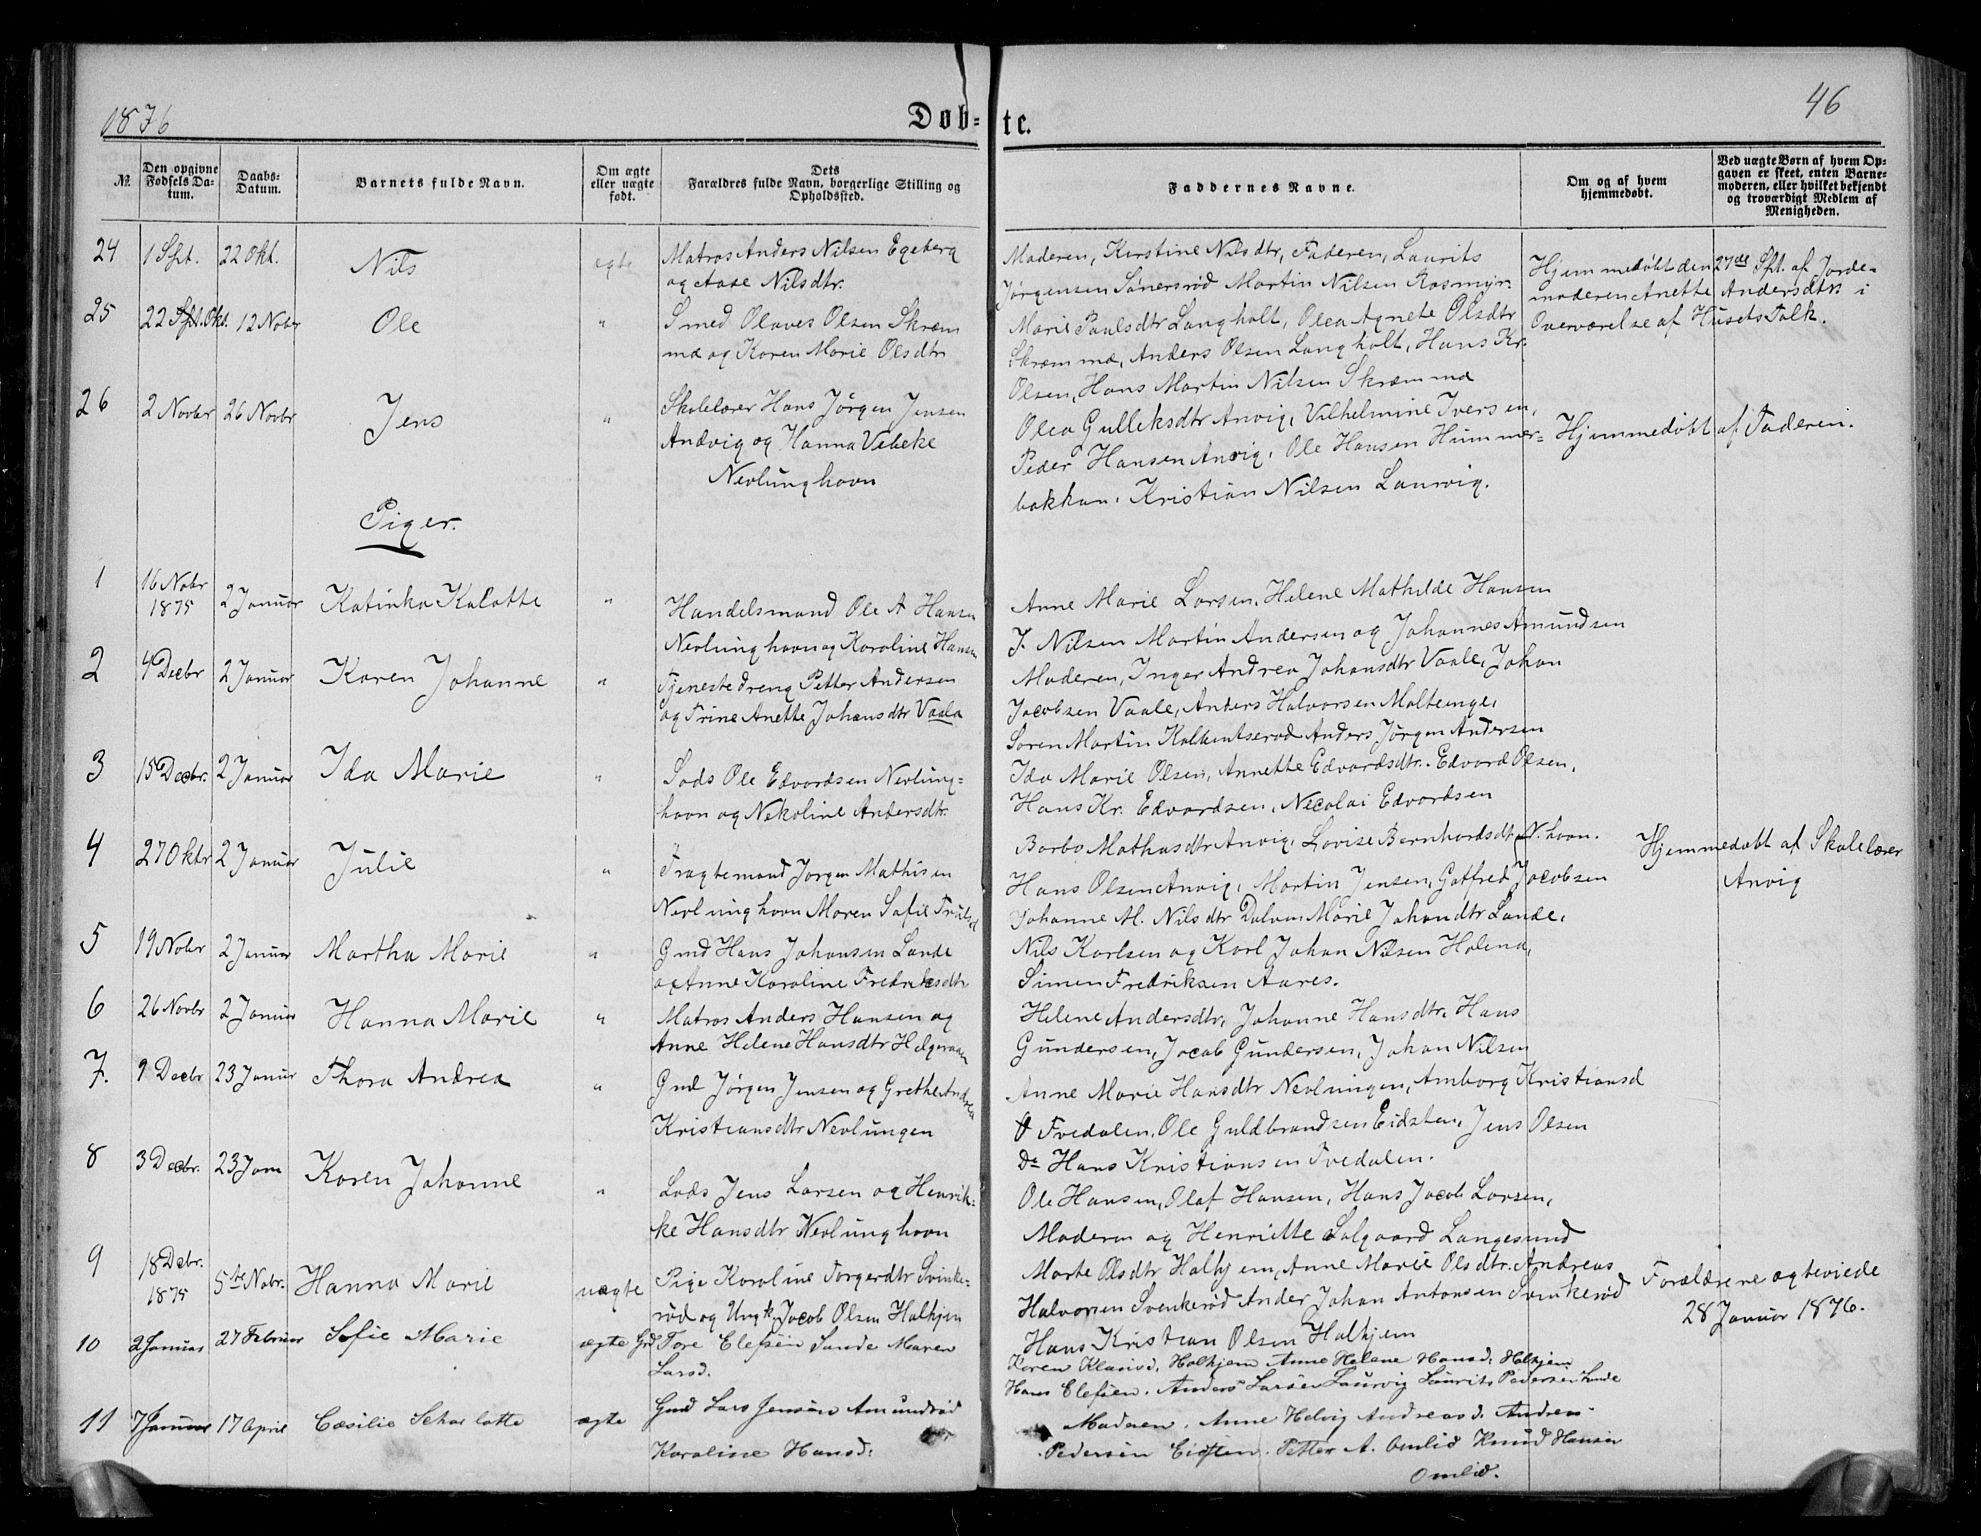 1876
Døb-te.
46
№
Den opgivne Fødsels Da-tum.
Daabs-Datum.
Barnets fulde Navn.
Om ægte eller uægte født.
Dets Forældres fulde Navn, borgerlige Stilling og Opholdssted.
Faddernes Navne.
Om og af hvem hjemmedøbt.
Ved uægte Børn af hvem Op-gaven er skeet, enten Barne-moderen, eller hvilket bekjendt og troværdigt Medlem af Menigheden.
24 1 Spt. 22 Okt. Nils ægte Matros Anders Nilsen Egeberg
og Aase Nilsdtr.
Moderen, Kirstine Nilsdtr, Faderen, Laurits
Jørgensen Sønersrød Martin Nilsen Rosmyr.
Hjemmedøbt den 27de Spt. af Jorde-
moderen Anette Andersdtr. i
Overværelse af Husets Folk.
25 22 Spt. Okt. 12 Nobr Ole " Smed Olaves Olsen Skræm
mæ og Karen Marie Olsdtr
Marie Paulsdtr Langholt, Olea Agnete Olsdtr
Skræmmæ, Anders Olsen Langholt, Hans Kr.
Olsen, Hans Martin Nilsen Skræmma
26 2 Novbr 26 Novbr Jens " Skolelærer Hans Jørgen Jensen
Andvig og Hanna Vebeke
Nevlunghavn
Olea Gulleksdtr Anvig, Vilhelmine Iversen,
Peder Hansen Anvig, Ole Hansen Hummer-
bakken, Kristian Nilsen Laurvig.
Hjemmedøbt af Faderen.
Piger.
1 16 Nobr 1875 2 Januar Katinka Kalotte " Handelsmand Ole A Hansen
Nevlunghavn og Karoline Hansen
Anne Marie Larsen, Helene Mathilde Hansen
J. Nilsen Martin Andersen og Johannes Amundsen
2 4 Decbr 2 Januar Karen Johanne " Tjenestedreng Petter Andersen
og Trine Anette Johansdtr Vaale
Moderen, Inger Andrea Johansdtr Vaale, Johan
Jacobsen Vaale, Anders Halvorsen Malteinge,
Søren Martin Kalkentserød Anders Jørgen Andersen
3 15 Decbr. 2 Januar Ida Marie " Lods Ole Edvardsen Nevlung-
havn og Nekoline Andersdtr.
Ida Marie Olsen, Annette Edvardsdtr. Edvard Olsen,
Hans Kr. Edvardsen, Necolai Edvardsen
4 27 Oktr 2 Januar Julie " Fragtemand Jørgen Mathisen
Nevlunghavn Maren Sofie Trulsd
Barbo Mathisdtr Anvig, Lovise Bernhardsdtr N.havn.
Hans Olsen Anvig, Martin Jensen, Gotfred Jacobsen
Hjemmedøbt af Skolelærer
Anvig
5 19 Nobr 2 Januar Martha Marie " Gmd Hans Johansen Lande
og Anne Karoline Fredriksdtr
Johanne M. Nilsdtr Dalven, Marie Johandtr Lande,
Nils Karlsen og Karl Johan Nilsen Halena,
Simen Fredriksen Aares.
6 26 Novbr 2 Januar Hanna Marie " Matros Anders Hansen og
Anne Helene Hansdtr Helgeraaen
Helene Andersdtr, Johanne Hansdtr, Hans
Gundersen, Jacob Gundersen, Johan Nilsen
7. 9 Decbr 23 Januar Thora Andrea " Gmd Jørgen Jensen og Grethe Andrea
Kristiansdtr Nevlungen
Anne Marie Hansdtr Nevlungen, Amborg Kristiansd
Tvedalen, Ole Guldbrandsen Eidsten, Jens Olsen
Do Hans Kristiansen Tvedalen.
8 3 Decbr. 23 Jan Karen Johanne " Lods Jens Larsen og Henrik-
ke Hansdtr Nevlunghavn
Ole Hansen, Olaf Hansen, Hans Jacob Larsen,
Moderen og Henriette Salgaard Langesund
9 18 Debr. 1875 5te Nobr. Hanna Marie uægte Pige Karoline Torgerdtr Svinke-
rød og Ungk. Jacob Olsen Halhjem
Marte Olsdtr Halhjem, Anne Marie Olsdtr. Andreas
Halvorsen Svenkerød Ander Johan Antonsen Svinkerød
Hans Kristian Olsen Halhjem
Forældrene ægteviede
28 Januar 1876.
10 2 Januar 27 Februar Sofie Marie ægte Gd Tore Elefsen Sande Maren
Larsd.
Karen Klausd. Halhjem Anne Helene Hansd. Halhjem
Hans Elefsen. Anders Larsen Laurvig Laurits Pedersen Lunde
11 7 Januar 17 April Cæsilie Scharlotte ægte Gmd Lars Jensen Amundrød
Karoline Hansd:
Moderen. Anne Helvig Andreasd. Andreas
Pedersen Eidsten. Petter A. Omlid Knud Hansen
Omlid.